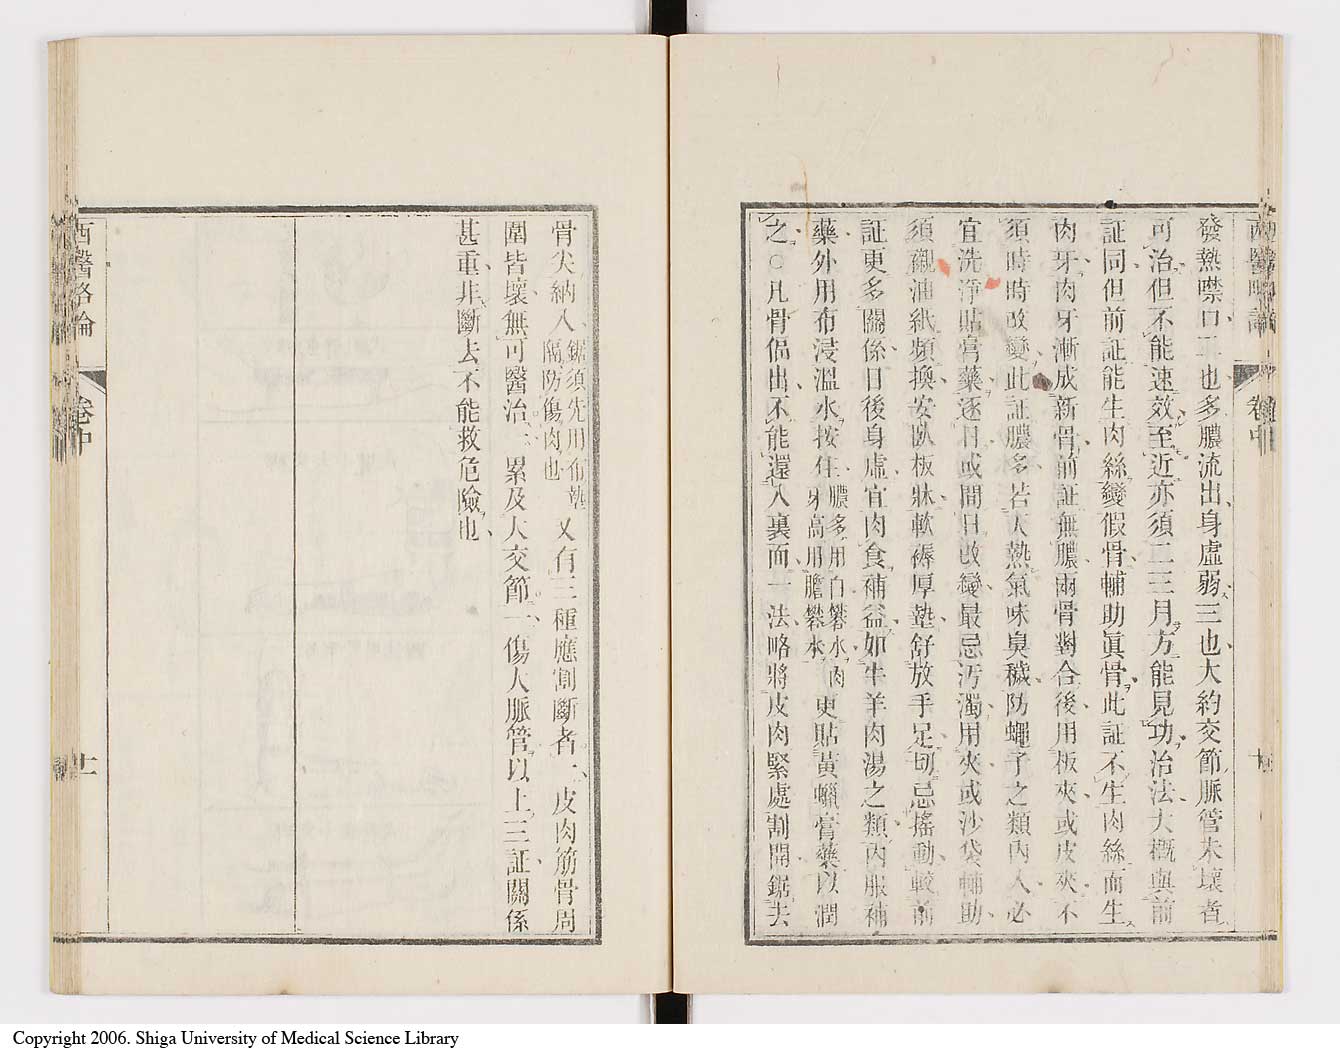 西醫略論 卷中
發熱噤口二也多膿流出身虛弱三也大約交節脈管未壞者
可治但不能速效至近亦須二三月方能見功治法大概與前
証同但前証能生肉絲變假骨輔助眞骨此証不生肉絲而生
肉牙肉牙漸成新骨前証無膿兩骨對合後用板夾或皮夾不
須時時改變此証膿多若天熱氣味臭穢防蠅子之類內入必
宜洗淨貼膏藥逐日或間日改變最忌汚濁用夾或沙袋輔助
須襯油紙頻換安臥板牀軟褥厚墊舒放手足切忌搖動較前
証更多關係日後身虛宜肉食補益如牛羊肉湯之類內服補
藥外用布浸溫水按住膿多用白礬水肉牙高用膽礬水更貼黃蠟膏藥以潤
之○凡骨侷出不能還入裏面一法略將皮肉緊處割開鋸去
骨尖納入鋸須先用布墊隔防傷肉也又有三種應割斷者一皮肉筋骨周
圍皆壞無可醫治一累及大交節一傷大脈管以上三証關係
甚重非斷去不能救危險也
西醫略論 卷中 十一
Copyright 2006. Shiga University of Medical Science Library